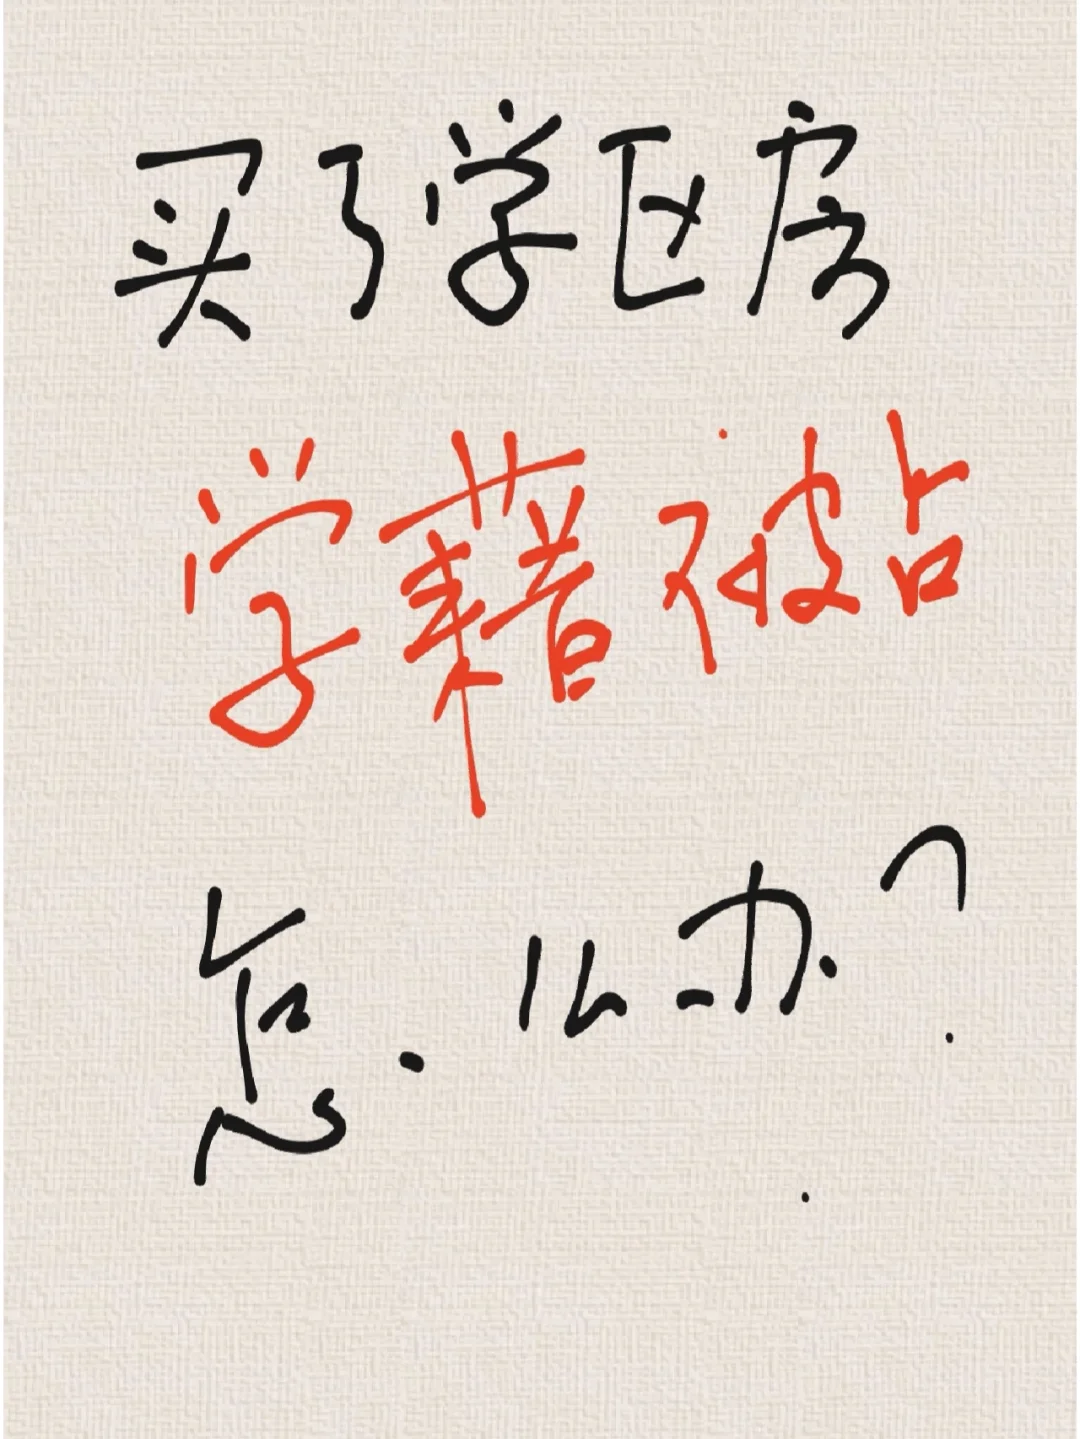 买了学区房
学藉被占
怎么办?